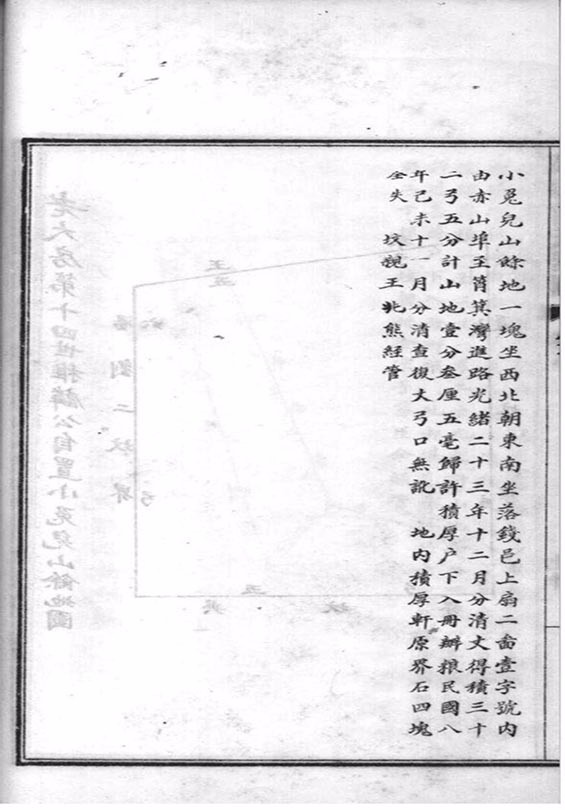 小兔兒山餘地一塊坐西北朝東南坐落錢邑上扇二畝壹字號內
由赤山埠至筲箕灣進路光緒二十三年十二月分清丈得積三十
二弓五分計山地壹分叁厘五毫歸許積厚户下入冊辦粮民國八
年己未十一月分清查復大弓口無訛 地內積厚軒原界石四塊
全失 坟親王兆熊經管
老大房第十四世 公自置小兔兒山餘地圖
劉二坟界